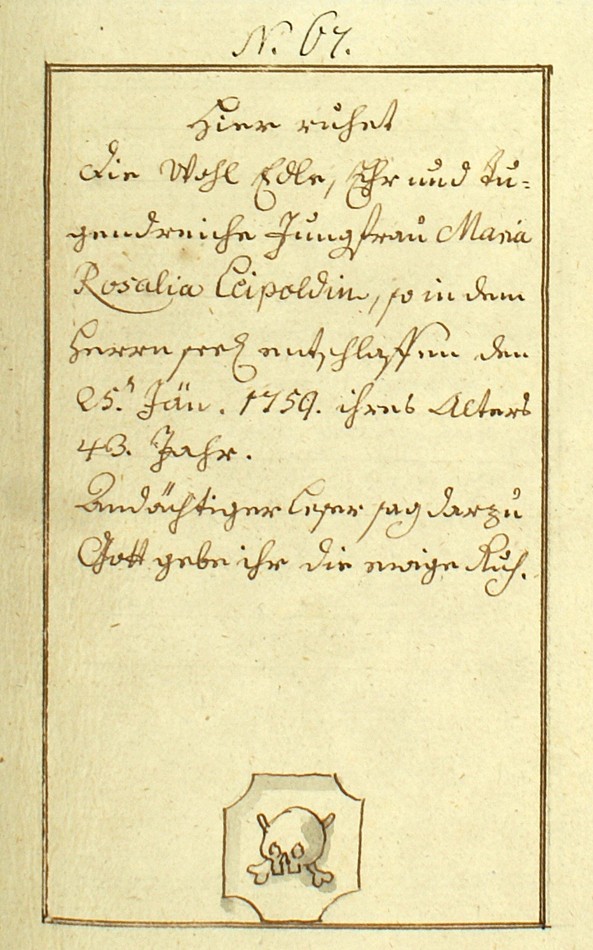 N. 67.
Hier ruhet
die Wohl Edle, Ehr und Tu=
gendreiche Jungfrau Maria
Rosalia Leipoldin, so in dem
Herrn seel entschlaffen den
25. Jän. 1759. ihres Alters
43. Jahr.
Andächtiger leser sag darzu
Gott gebe ihr die ewige Ruh.